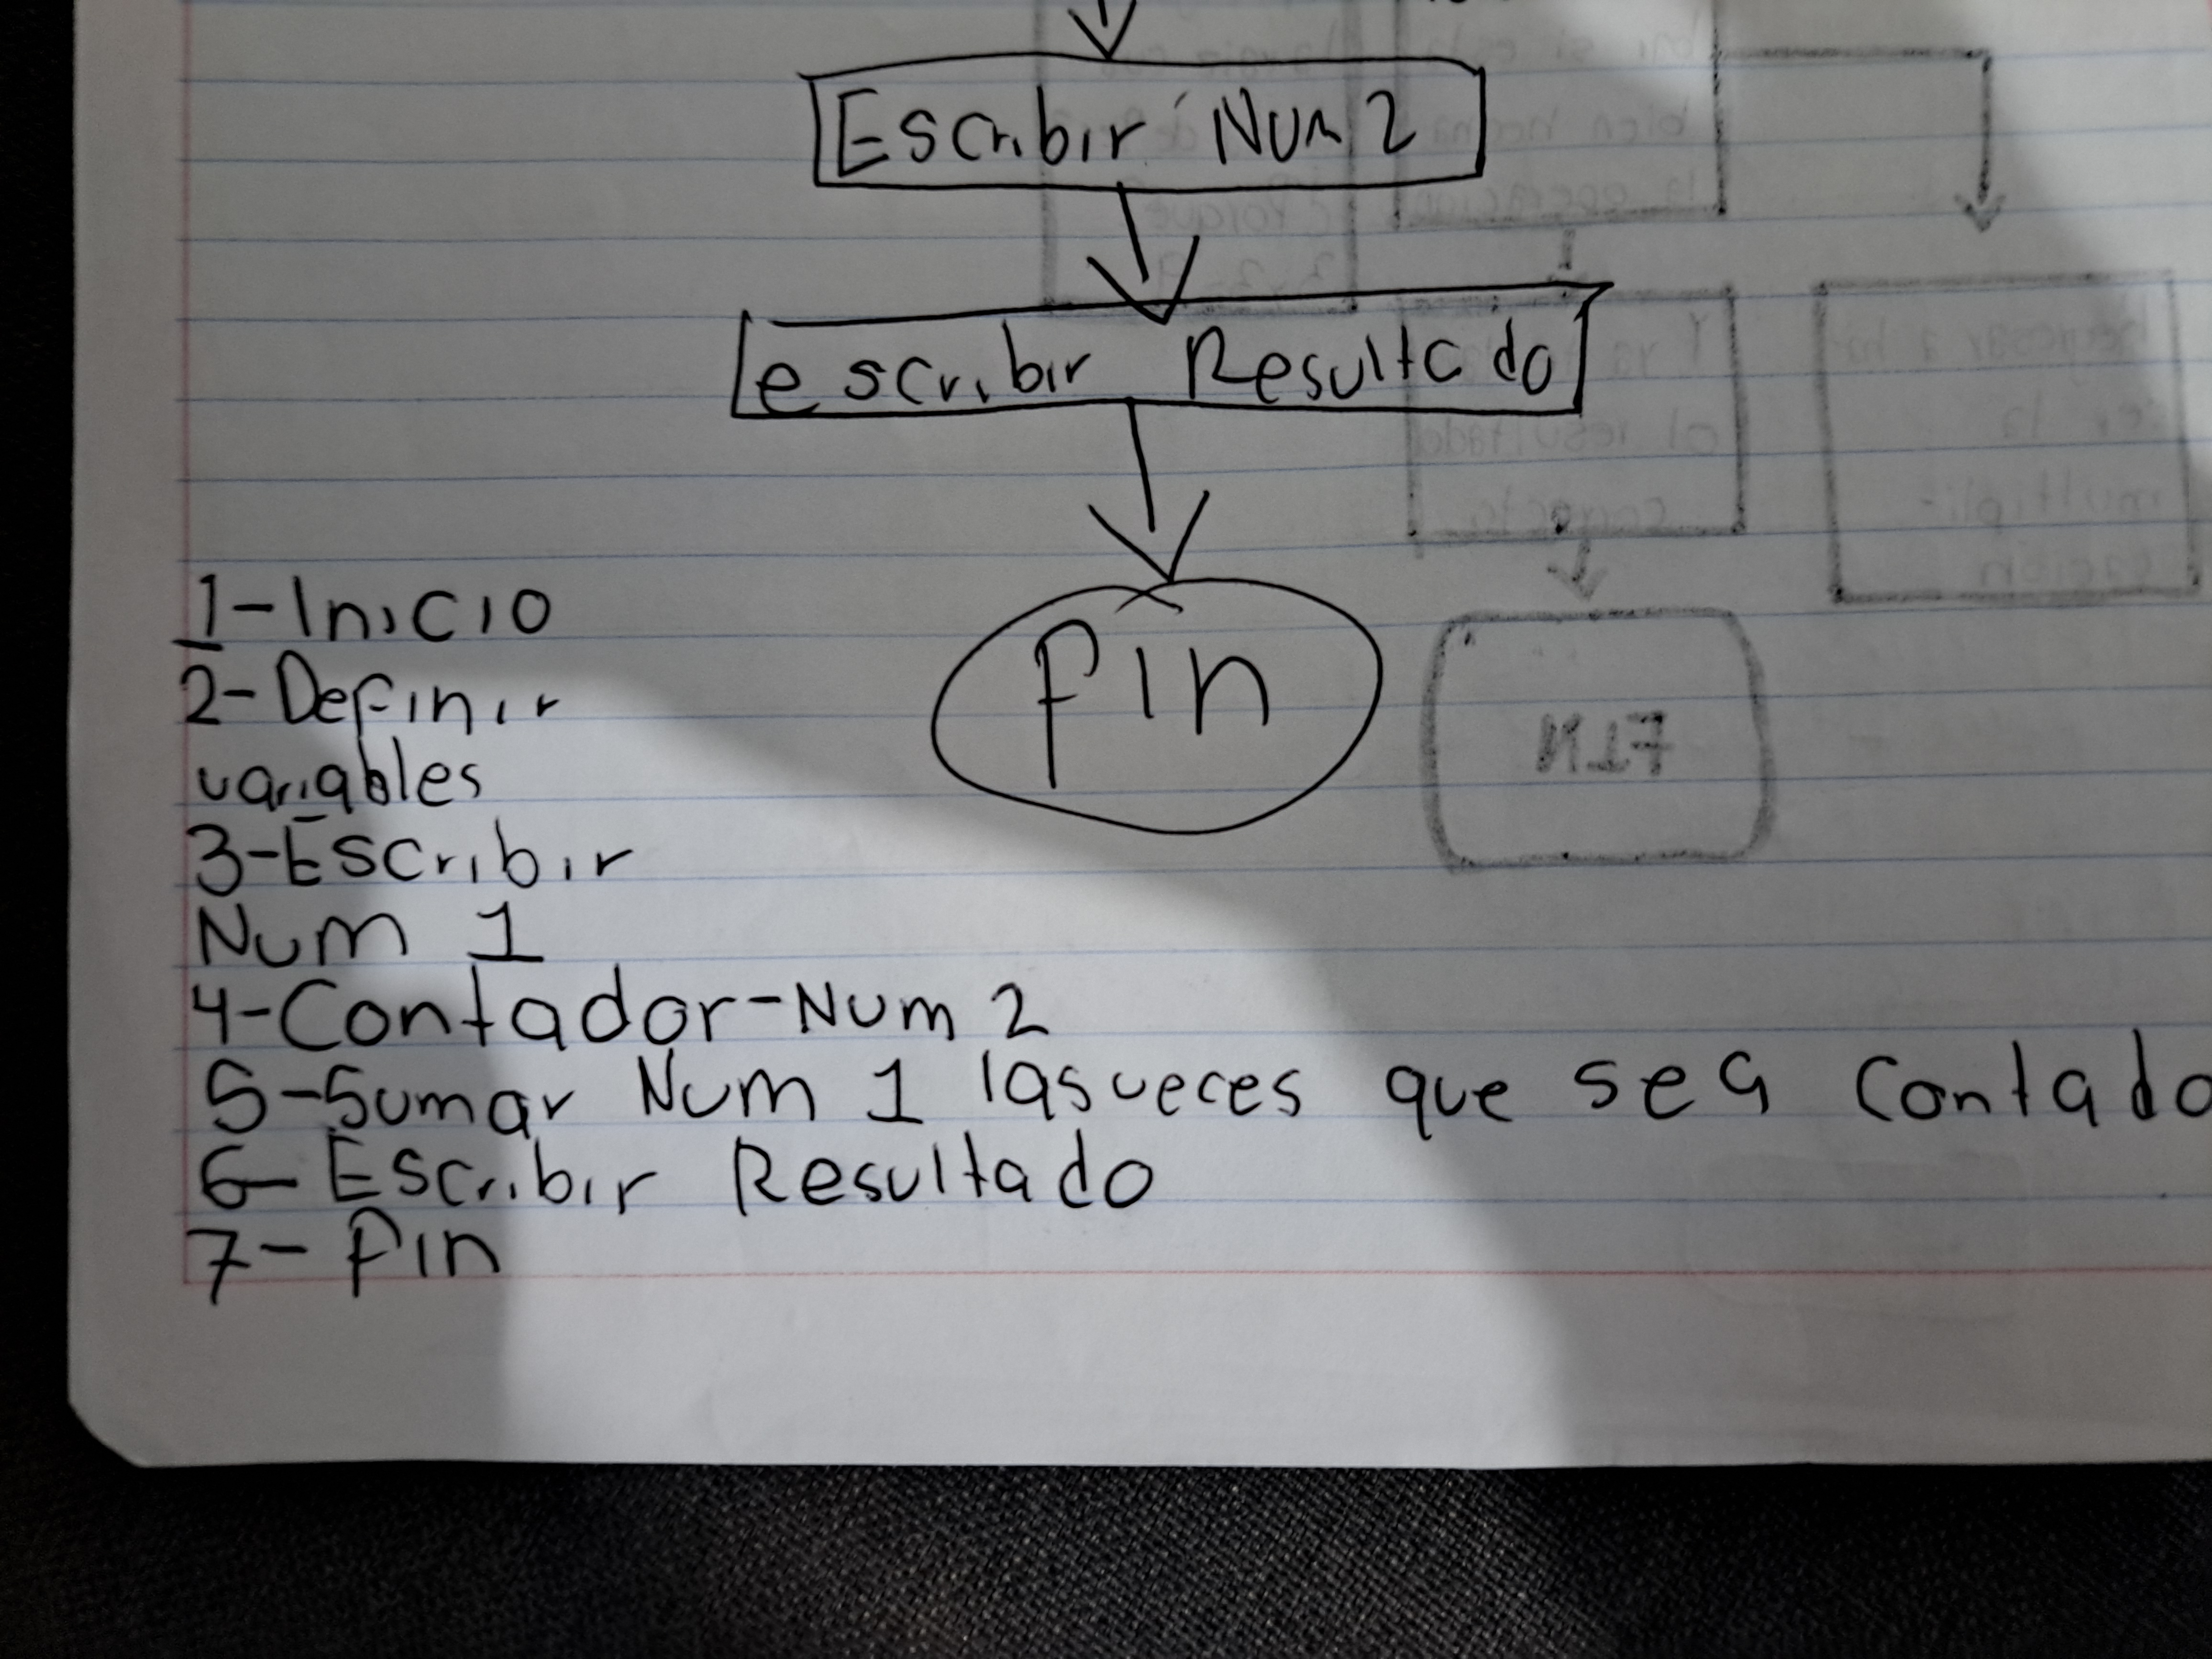 Escribir Num 2
escribir Resultado
fin
1-Inicio
2-Definir
variables
3-Escribir
Num 1
4-Contador-Num 2
5-Sumar Num 1 las veces que sea contado
6-Escribir Resultado
7-fin